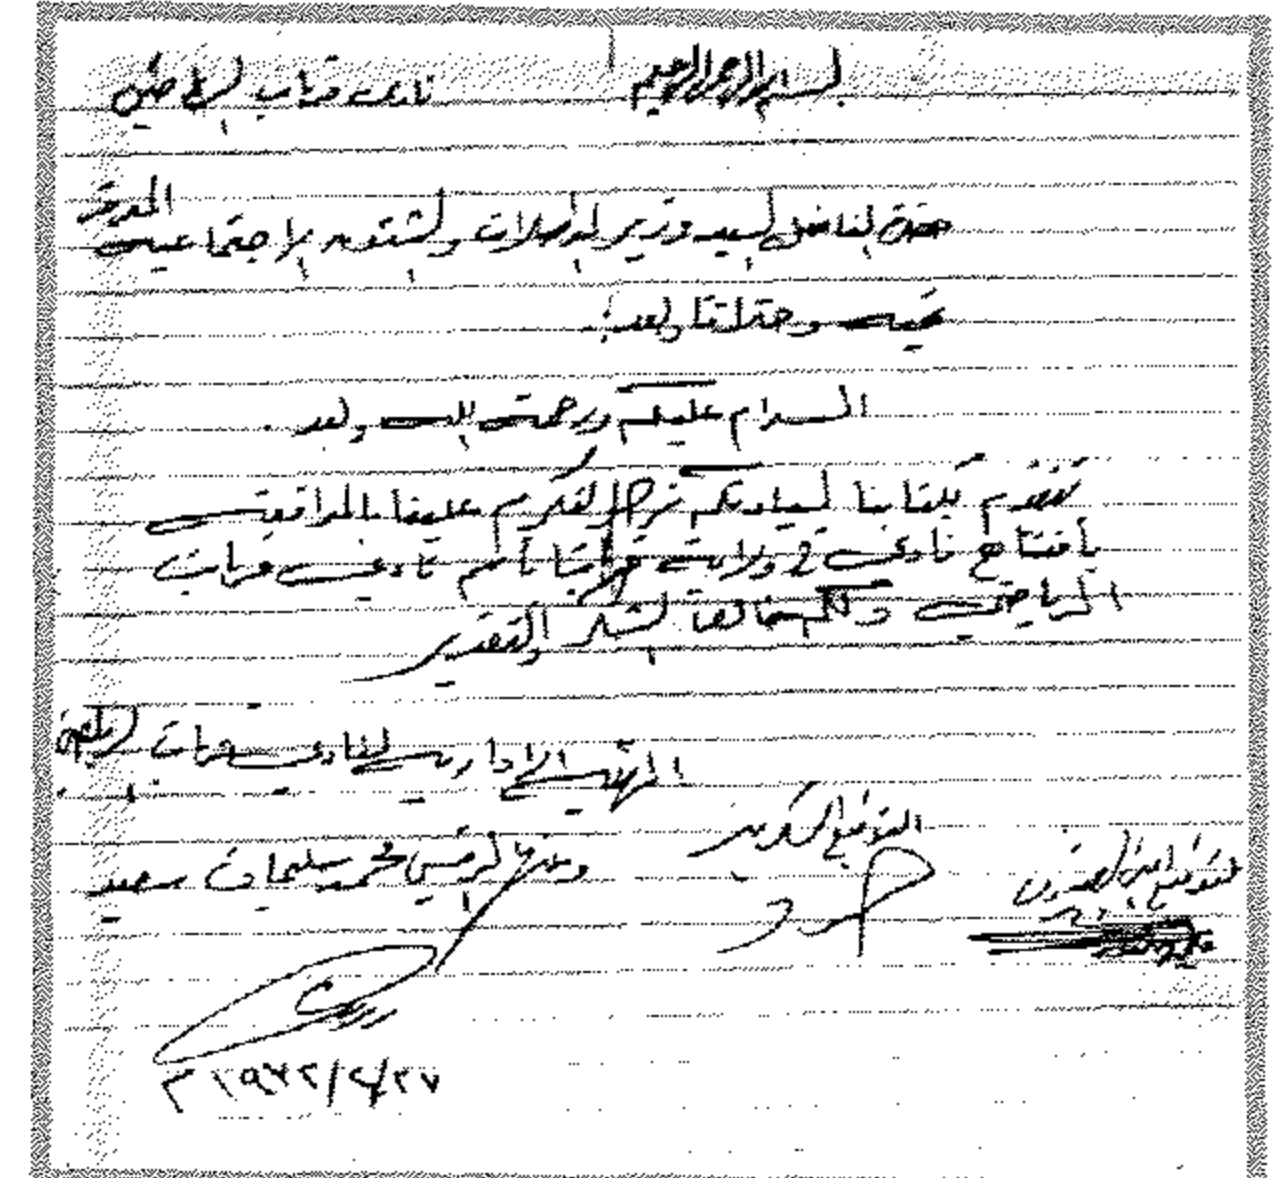 بسم الله الرحمن الرحيم
نادي قريات الرياضي
حضرة الفاضل السيد وزير المواصلات والشئون الاجتماعية الموقر
تحية وحتراما وبعد:
السلام عليكم ورحمت الله وبعد.
نتقدم بكتابنا لسيادتكم نرجوا التكرم علينا بالموافقة
بأفتتاح نادي في ولاية قريات بأسم نادي قريات
الرياضي ولكم خالص الشكر والتقدير
الهيئة الادارية لنادي قريات الرياضي
التوقيع السكرتير
توقيع امين الصندوق
الرئيس محمد سليمان سعيد
١٩٧٢/٢/٢٧ م